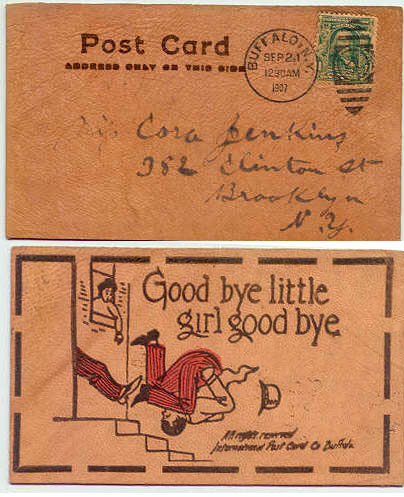 Post Card
ADDRESS ONLY ON THIS SIDE
BUFFALO, N.Y.
SEP 21
12 30 AM
1907
Cora Jenkins
382 Clinton St
Brooklyn
N.Y.
Good bye little
girl good bye
All rights reserved
International Post Card Co Buffalo